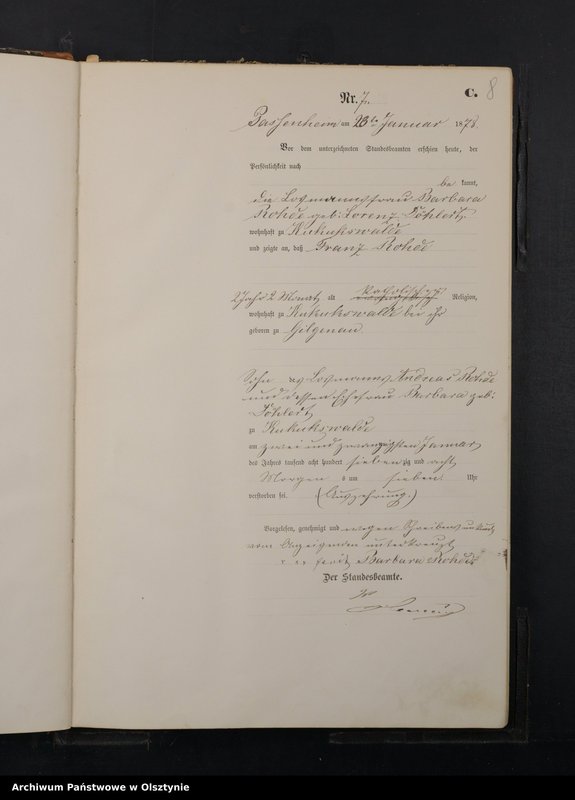 C. 8
Nr. 7.
Passenheim am 23ten Januar 1878.
Vor dem unterzeichneten Standesbeamten erschien heute, der
Persönlichkeit nach
be kannt,
die Losmannsfrau Barbara
Rohde geb. Lorenz Döhlert,
wohnhaft zu Kukukswalde
und zeigte an, daß Franz Rohde
2 Jahr 2 Monat alt katholischer Religion,
wohnhaft zu Kukukswalde bei ihr
geboren zu Gilgenau
Sohn des Losmanns Andreas Rohde
und dessen Ehefrau Barbara geb.
Döhlert
zu Kukukswalde
am zwei und zwanzigsten Januar
des Jahres tausend acht hundert siebenzig und acht
Morgens um sieben Uhr
verstorben sei. (Auszehrung.)
Vorgelesen, genehmigt und wegen Schreibensunkunde
vom Anzeigenden unterkreuzt
x x x Barbara Rohde
Der Standesbeamte.
Archiwum Państwowe w Olsztynie